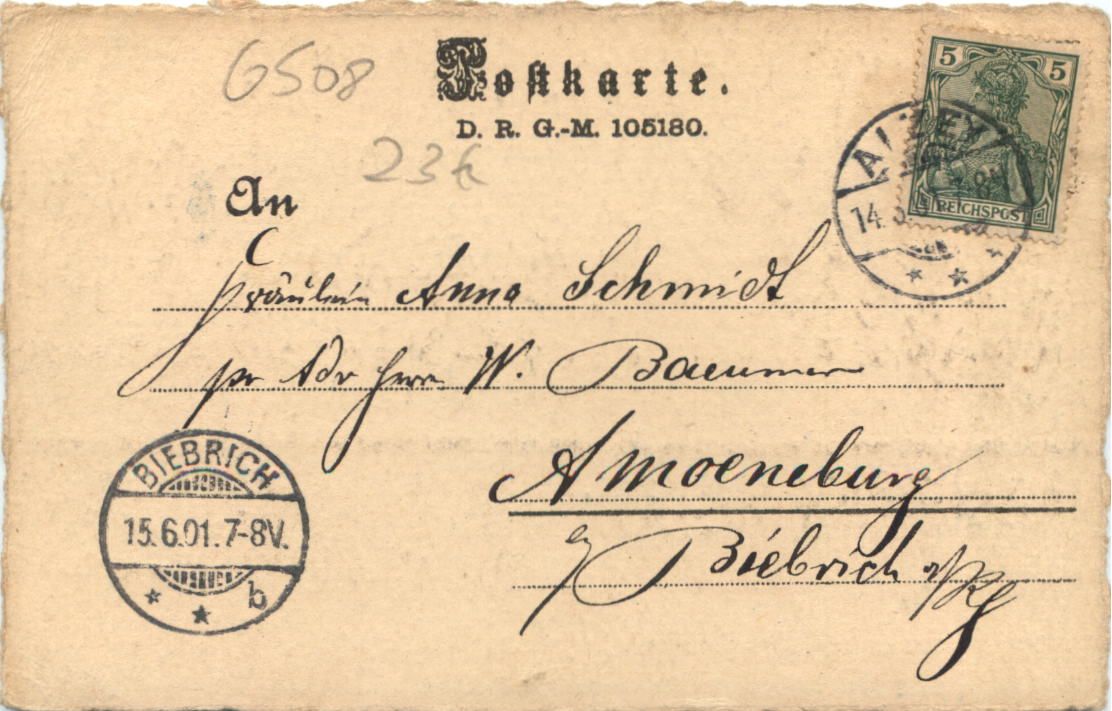 GS08
Postkarte.
D. R. G.-M. 105180.
23€
5 5
REICHSPOST
ALZEY
14.
An
Fräulein Anna Schmidt
pr Adr Herrn W. Baeumer
Amoeneburg
b/ Biebrich a/Rh
BIEBRICH
15.6.01.7-8V.
* * b